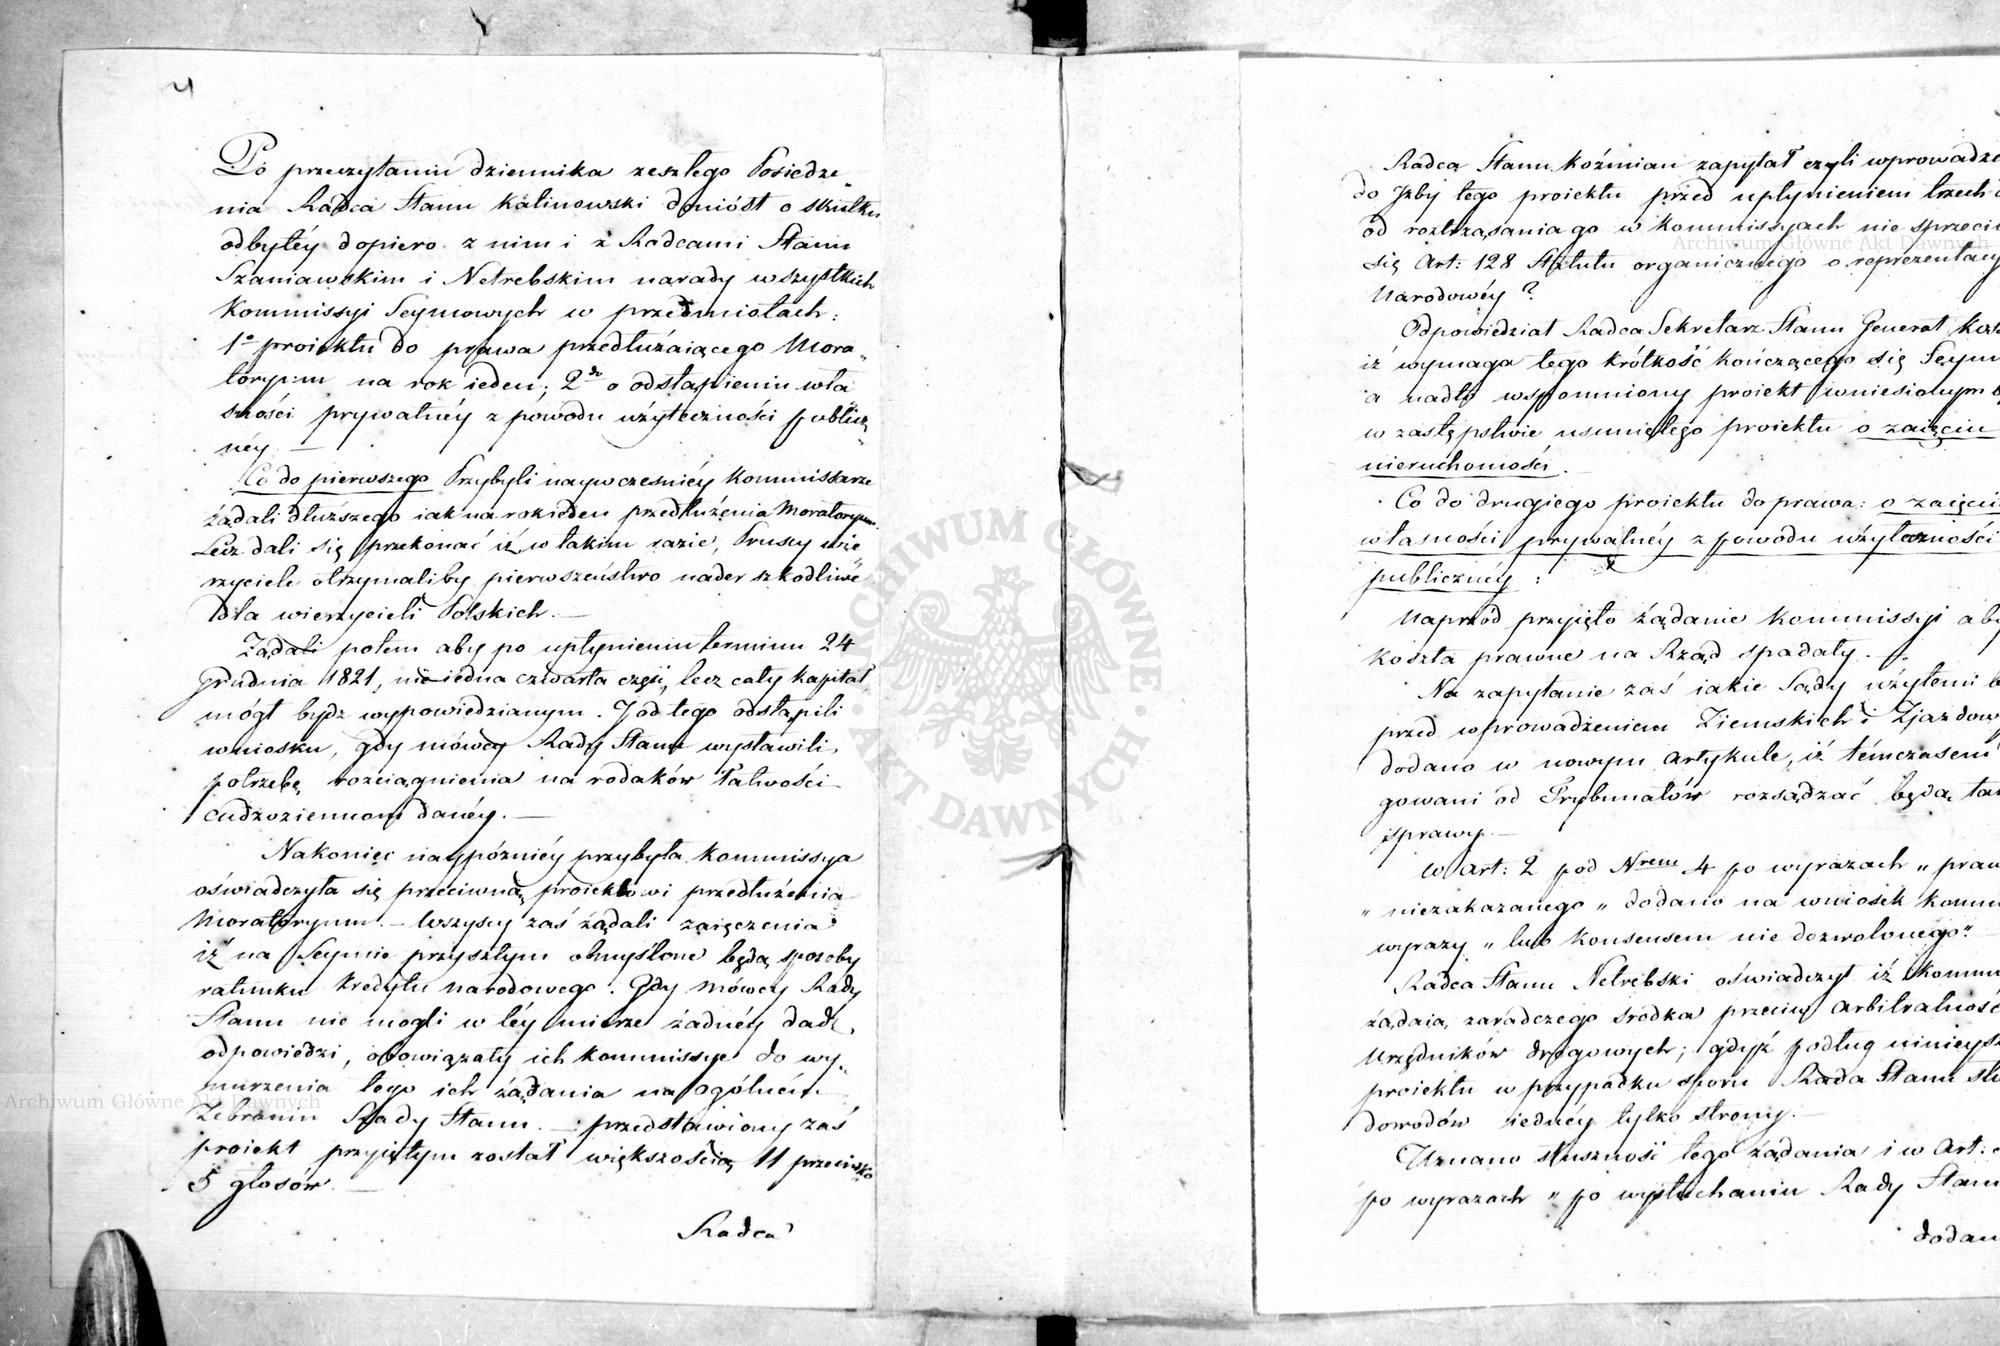 Po przeczytaniu dziennika zeszłego Posiedze„
nia Radca Stanu Kalinowski doniósł o skutku
odbytéy dopiero z nim i z Radcami Stanu
Szaniawskim i Netrebskim narady wszystkich
Kommissyi Seymowych w przedmiotach:
1º proiektu do prawa przedłużaiącego Mora„
toryum na rok ieden; 2do o odstąpieniu wła„
sności prywatnéy z powodu użyteczności publicz„
néy. —
Co do pierwszego Przybyli naywcześniéy Kommissarze
żądali dłuższego iak na rok ieden przedłużenia Moratoryum.
Lecz dali się przekonać iż w takim razie, Pruscy wie„
rzyciele otrzymaliby pierwszeństwo nader szkodliwe
dla wierzycieli Polskich. —
Żądali potem aby po upłynieniu terminu 24
Grudnia 1821, nie iedna czwarta część, lecz cały kapitał
mógł bydź wypowiedzianym. I od tego odstąpili
wniosku, gdy mówcy Rady Stanu wystawili
potrzebę rozciągnienia na rodaków łatwości
cudzoziemcom danéy. —
Nakoniec naypóźniéy przybyła Kommissya
oświadczyła się przeciwną proiektowi przedłużenia
Moratoryum. — Wszyscy zaś żądali zaręczenia
iż na Seymie przyszłym obmyślone będą sposoby
ratunku kredytu narodowego. Gdy Mówcy Rady
Stanu nie mogli w téy mierze żadnéy dadź
odpowiedzi, obowiązały ich Kommissye do wy„
nurzenia tego ich żądania na ogólném
Zebraniu Rady Stanu. — przedstawiony zaś
proiekt przyiętym został większością 11 przeciwko
5 głosów. —
Radca
Radca Stanu Koźmian zapytał czyli wprowadze
do Izby tego proiektu przed upłynieniem trzech
od roztrząsania go w Kommissyach nie sprzeci
się Art: 128 Statutu organicznego o reprezentacy
Narodowéy?
Odpowiedział Radca Sekretarz Stanu Generał Kos
iż wymaga tego krótkość kończącego się Seym
a nadto wspomniony proiekt wniesionym
w zastępstwie usuniętego proiektu o zaięciu
nieruchomości. —
Co do drugiego proiektu do prawa: o zaięciu
własności prywatnéy z powodu użyteczności
publicznéy:
Naprzód przyięto żądanie Kommissyi aby
koszta prawne na Rząd spadały. —
Na zapytanie zaś iakie Sądy użytemi b
przed wprowadzeniem Ziemskich i Zjazdow
dodano w nowym artykule, iż témczasem
gowani od Trybunałów rozsądzać będą ta
sprawy. —
W Art: 2 pod Nrem 4 po wyrazach „ praw
„ niezakazanego „ dodano na wniosek Komm
wyrazy „ lub konsensem nie dozwolonego". —
Radca Stanu Netrebski oświadczył iż Komm
żądaią zaradczego środka przeciw arbitralność
Urzędników drogowych; gdyż podług ninieysz
proiektu w przypadku sporu Rada Stanu słu
dowodów iednéy tylko strony. —
Uznano słuszność tego żądania i w Art:
po wyrazach „ po wysłuchaniu Rady Stanu
dodan
Archiwum Główne Akt Dawnych
Archiwum Główne Akt Dawnych
ARCHIWUM GŁÓWNE · AKT DAWNYCH ·